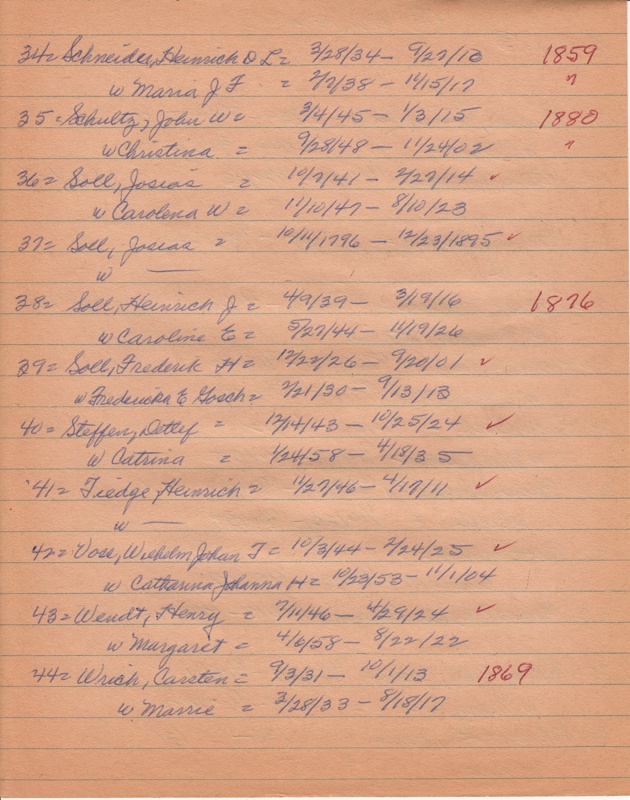 34= Schneider, Heinrich D L= 3/28/34 – 9/27/13 1859
w Maria J F = 2/2/38 – 11/15/17 "
35= Schultz, John W= 3/4/45 – 1/3/15 1880
w Christina = 9/28/48 – 11/24/02 "
36= Soll, Josias = 10/7/41 – 2/27/14 ✓
w Carolena W= 11/10/47 – 8/10/23
37= Soll, Josias = 10/11/1796 – 12/23/1895 ✓
w —
38= Soll, Heinrich J = 4/9/39 – 3/19/16 1876
w Caroline E = 5/27/44 – 11/19/26
39= Soll, Frederik H= 12/22/26 – 9/20/01 ✓
w Fredericka E Gosch= 2/21/30 – 9/13/13
40= Steffen, Detlef = 12/14/43 – 10/25/24 ✓
w Catrina = 1/24/58 – 4/18/35
41= Tiedge, Heinrich= 11/27/46 – 4/17/11 ✓
w —
42= Voss, Wilhelm Johan T= 10/3/44 – 2/24/25 ✓
w Catharina Johanna H= 10/23/53 – 11/1/04
43= Wendt, Henry = 2/11/46 – 4/29/24 ✓
w Margaret = 4/6/58 – 8/22/22
44= Wrich, Carsten= 9/3/31 – 10/1/13 1869
w Marrie = 3/28/33 – 8/18/17